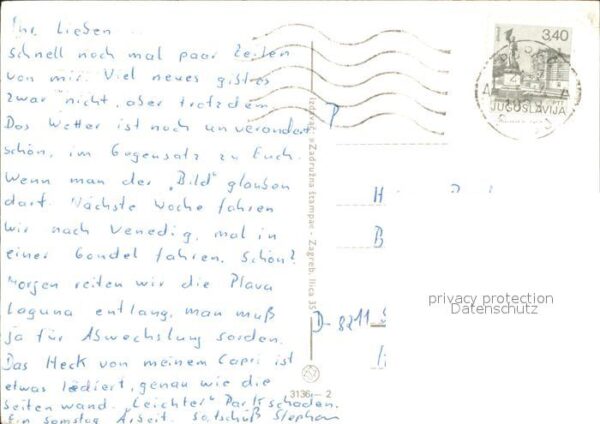 Ihr Lieben
schnell noch mal paar Zeilen
von mir. Viel neues gibt es
zwar nicht, aber trotzdem.
Das Wetter ist noch unverändert
schön, im Gegensatz zu Euch.
Wenn man der "Bild" glauben
darf. Nächste Woche fahren
wir nach Venedig, mal in
einer Gondel fahren. Schön?
Morgen reiten wir die Plava
Laguna entlang, man muß
ja für Abwechslung sorgen.
Das Heck von meinem Capri ist
etwas lädiert, genau wie die
Seitenwand. "Leichter" Parkschaden.
Ein Samstag Arbeit. Stephan
Izdavač: »Zadružna štampa« - Zagreb, Ilica 35
3136 — 2
3,40
JUGOSLAVIJA
P
H
B
D-8211
privacy protection
Datenschutz